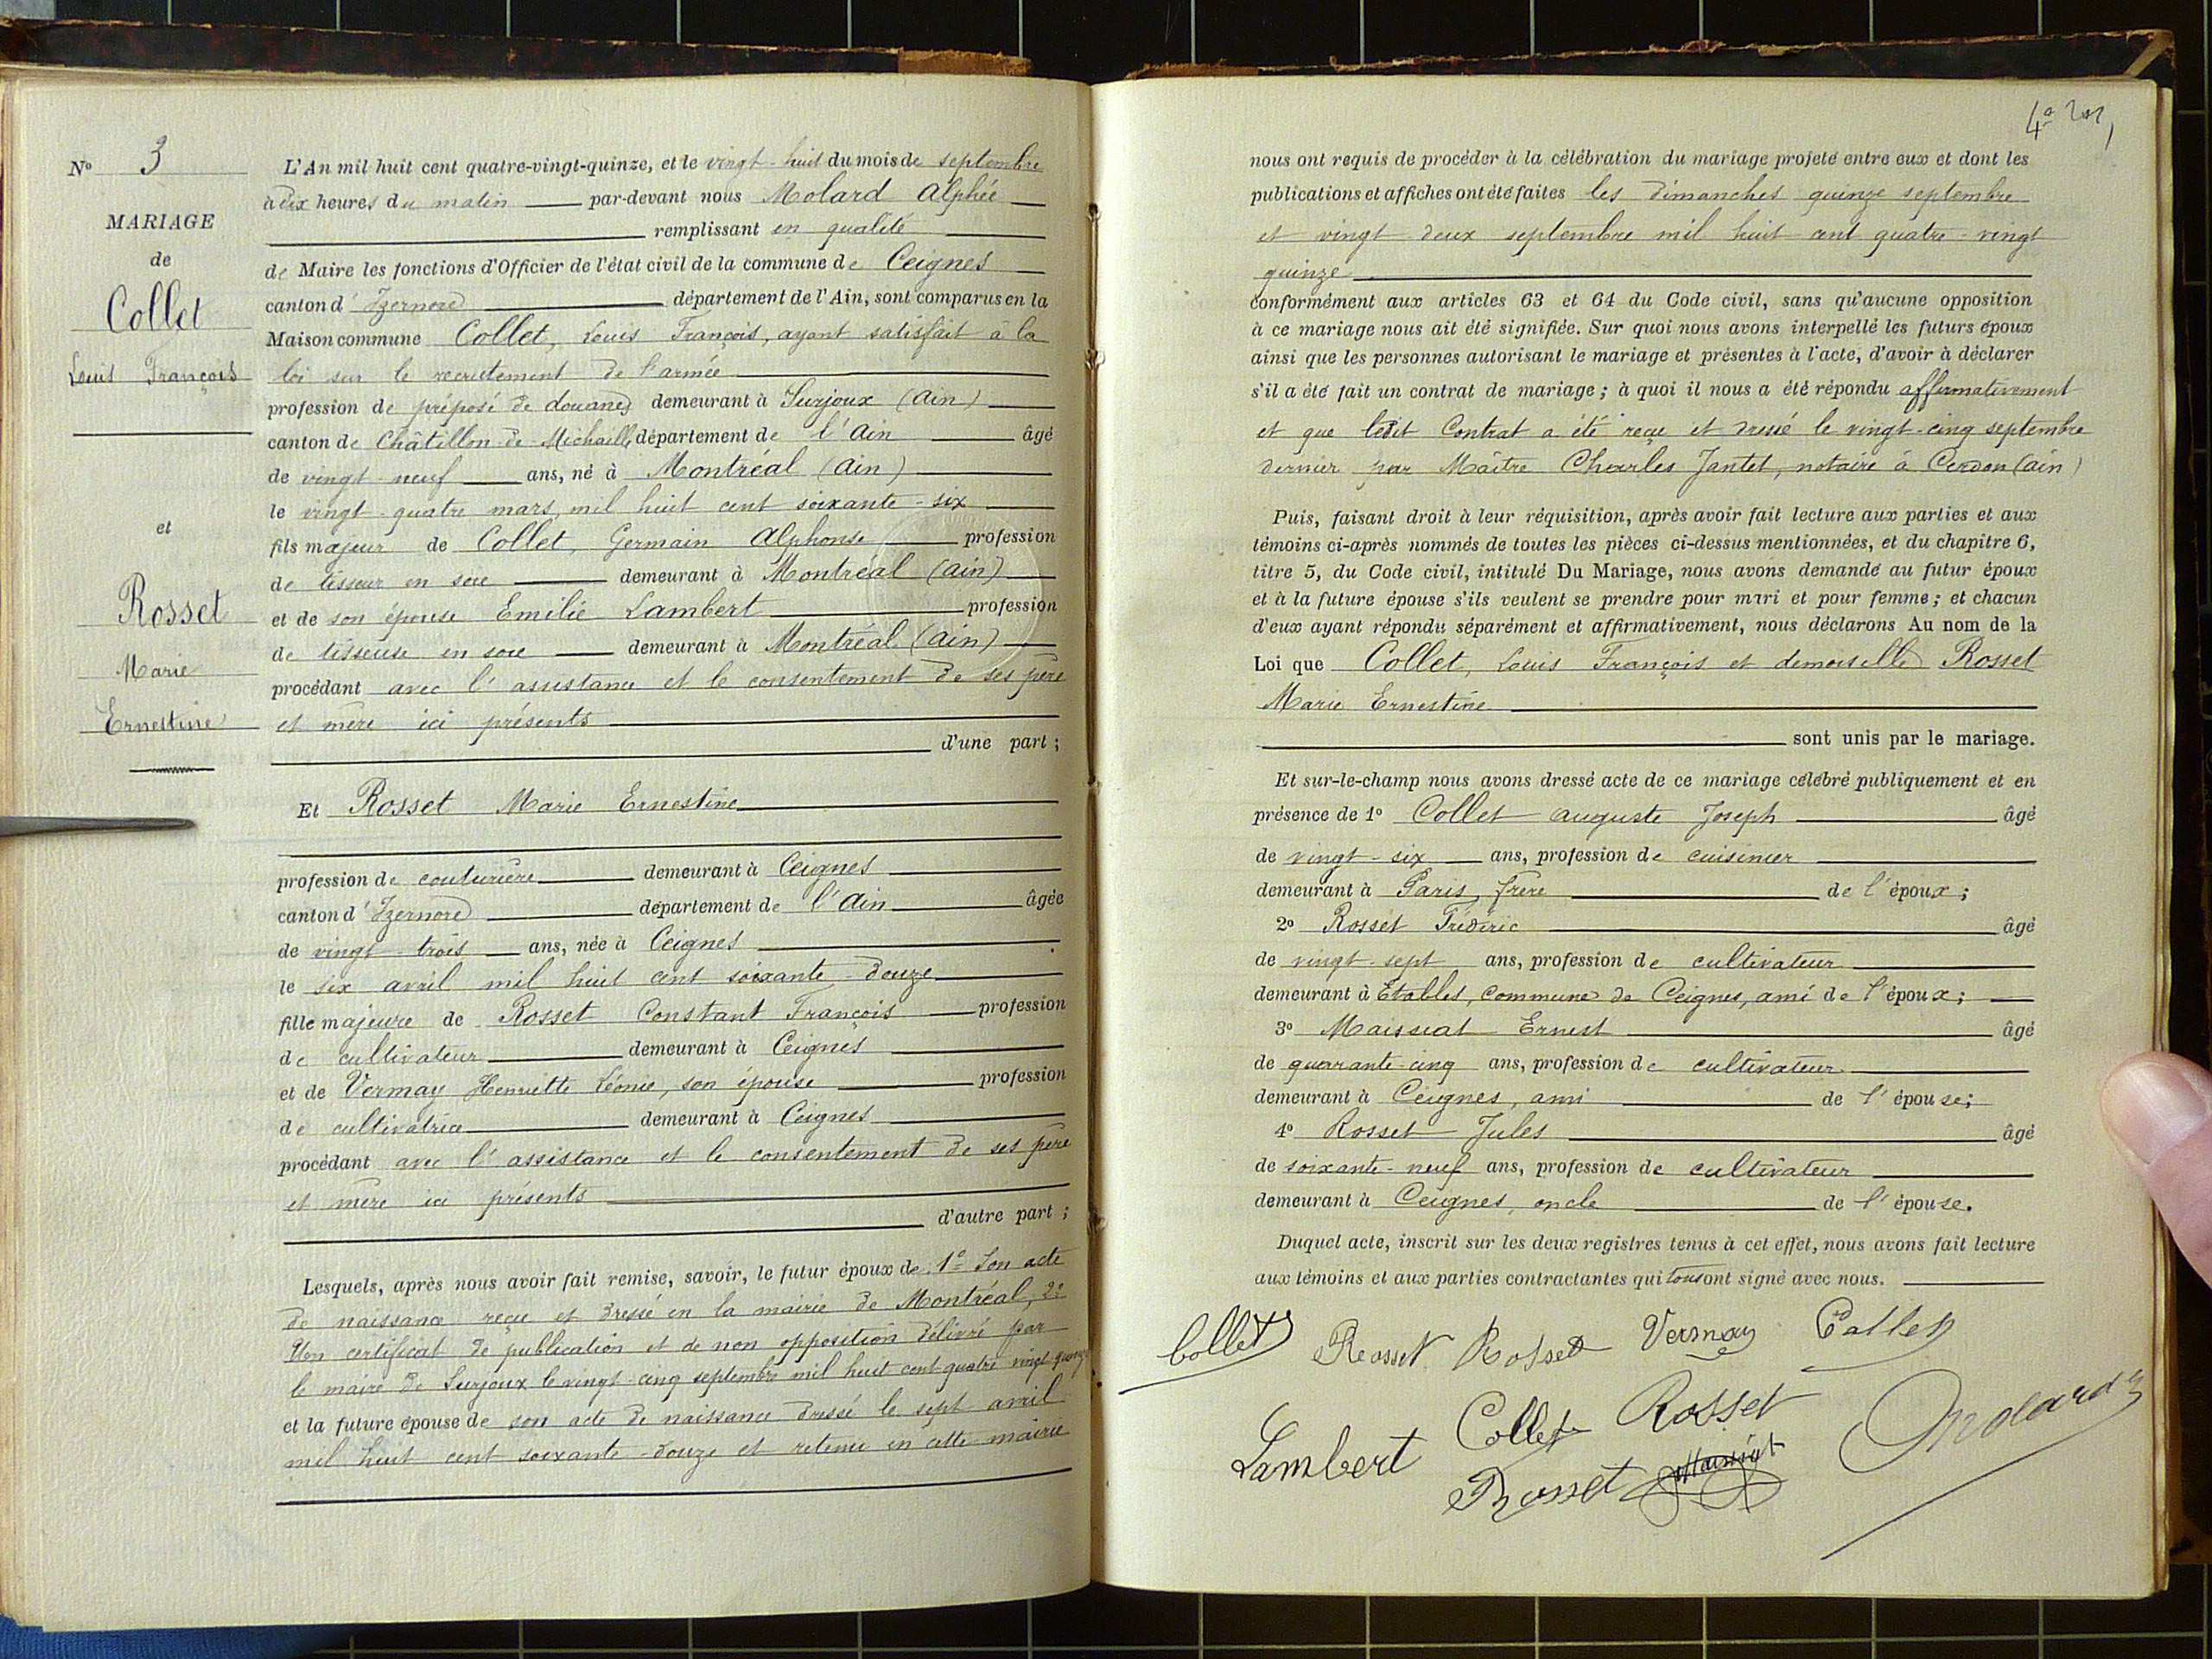 N° 3
MARIAGE
de
Collet
Louis François
et
Rosset
Marie
Ernestine
L'An mil huit cent quatre-vingt-quinze, et le vingt-huit du mois de septembre
à dix heures du matin par-devant nous Molard Alphée
remplissant en qualité
de Maire les fonctions d'Officier de l'état civil de la commune de Ceignes
canton d'Izernore département de l'Ain, sont comparus en la
Maison commune Collet, Louis François, ayant satisfait à la
loi sur le recrutement de l'armée
profession de préposé de douanes demeurant à Surjoux (Ain)
canton de Châtillon-de-Michaille département de l'Ain âgé
de vingt-neuf ans, né à Montréal (Ain)
le vingt-quatre mars, mil huit cent soixante-six
fils majeur de Collet, Germain Alphonse profession
de tisseur en soie demeurant à Montréal (Ain)
et de son épouse Emilie Lambert profession
de tisseuse en soie demeurant à Montréal (Ain)
procédant avec l'assistance et le consentement de ses père
et mère ici présents
d'une part ;
Et Rosset Marie Ernestine
profession de couturière demeurant à Ceignes
canton d'Izernore département de l'Ain âgée
de vingt-trois ans, née à Ceignes
le six avril mil huit cent soixante-douze
fille majeure de Rosset Constant François profession
de cultivateur demeurant à Ceignes
et de Vermay Henriette Léonie, son épouse profession
de cultivatrice demeurant à Ceignes
procédant avec l'assistance et le consentement de ses père
et mère ici présents
d'autre part ;
Lesquels, après nous avoir fait remise, savoir, le futur époux de 1° Son acte
de naissance reçu et dressé en la mairie de Montréal, 2°
Un certificat de publication et de non opposition délivré par
le maire de Surjoux le vingt-cinq septembre mil huit cent quatre vingt quinze
et la future épouse de son acte de naissance dressé le sept avril
mil huit cent soixante-douze et retenu en cette mairie
nous ont requis de procéder à la célébration du mariage projeté entre eux et dont les
publications et affiches ont été faites les dimanches quinze septembre
et vingt deux septembre mil huit cent quatre-vingt
quinze
conformément aux articles 63 et 64 du Code civil, sans qu'aucune opposition
à ce mariage nous ait été signifiée. Sur quoi nous avons interpellé les futurs époux
ainsi que les personnes autorisant le mariage et présentes à l'acte, d'avoir à déclarer
s'il a été fait un contrat de mariage ; à quoi il nous a été répondu affirmativement
et que ledit Contrat a été reçu et dressé le vingt-cinq septembre
dernier par Maître Charles Jantet, notaire à Cerdon (Ain)
Puis, faisant droit à leur réquisition, après avoir fait lecture aux parties et aux
témoins ci-après nommés de toutes les pièces ci-dessus mentionnées, et du chapitre 6,
titre 5, du Code civil, intitulé Du Mariage, nous avons demandé au futur époux
et à la future épouse s'ils veulent se prendre pour mari et pour femme ; et chacun
d'eux ayant répondu séparément et affirmativement, nous déclarons Au nom de la
Loi que Collet, Louis François et demoiselle Rosset
Marie Ernestine
sont unis par le mariage.
Et sur-le-champ nous avons dressé acte de ce mariage célébré publiquement et en
présence de 1° Collet Auguste Joseph âgé
de vingt-six ans, profession de cuisinier
demeurant à Paris, frère de l'époux ;
2° Rosset Frédéric âgé
de vingt-sept ans, profession de cultivateur
demeurant à Etables, commune de Ceignes, ami de l'époux ;
3° Maissiat Ernest âgé
de quarante-cinq ans, profession de cultivateur
demeurant à Ceignes, ami de l'épouse ;
4° Rosset Jules âgé
de soixante-neuf ans, profession de cultivateur
demeurant à Ceignes, oncle de l'épouse.
Duquel acte, inscrit sur les deux registres tenus à cet effet, nous avons fait lecture
aux témoins et aux parties contractantes qui tous ont signé avec nous.
Collet Rosset Rosset Vermay Collet
Lambert Collet Rosset Molard
Rosset Maissiat